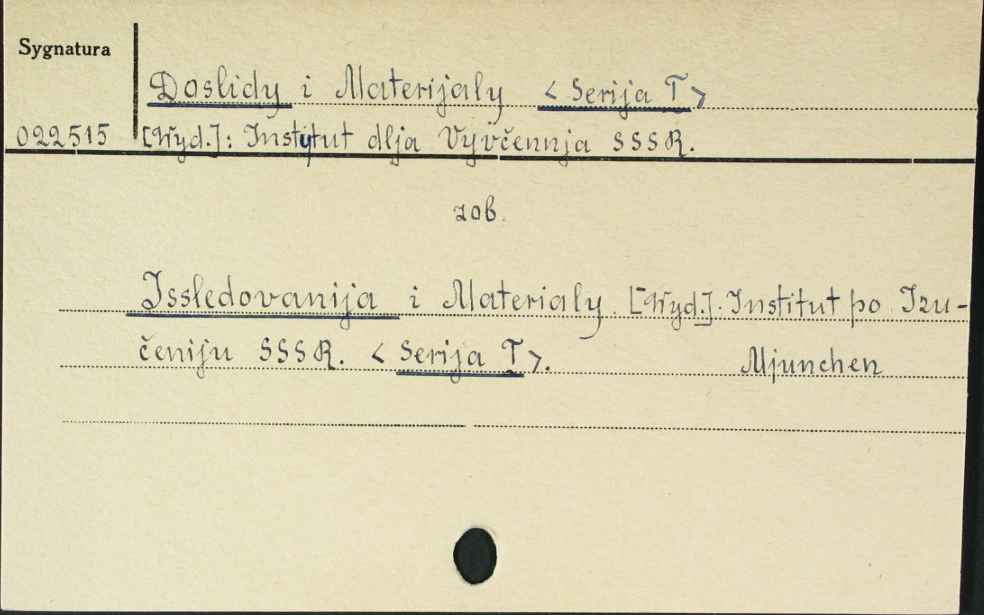 Sygnatura
Doslidy i Materijaly <Serija T>
022515 [Wyd.]: Instytut dlja Vyvčennja SSSR.
zob.
Issledovanija i Materialy. [Wyd.]. Institut po Izu-
čeniju SSSR. <Serija T>. Mjunchen